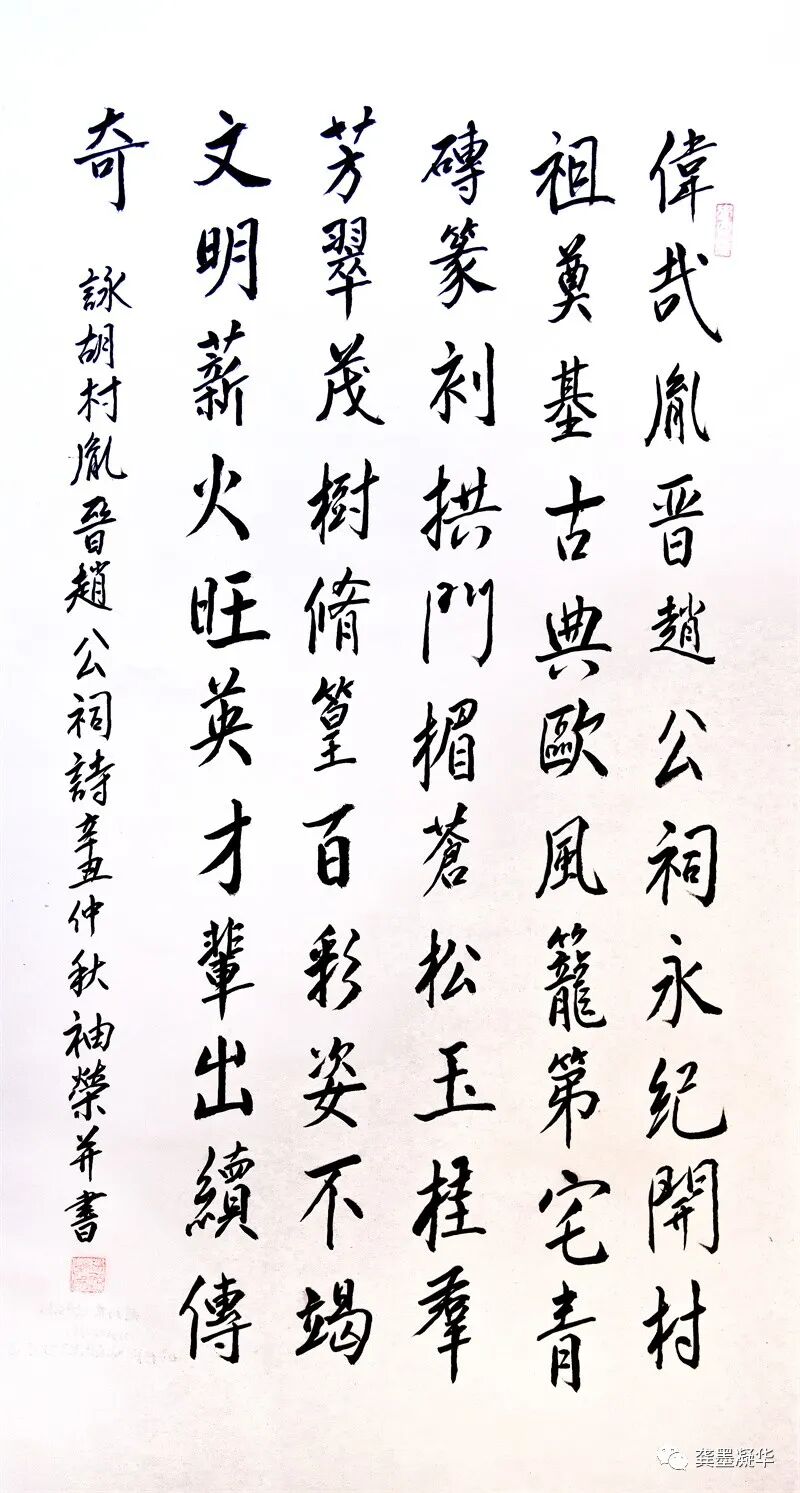 偉哉胤晋趙公祠永紀開村
祖奠基古典歐風籠第宅青
磚篆刻拱門楣蒼松玉桂羣
芳翠茂樹脩篁百彩姿不竭
文明薪火旺英才輩出續傳
奇
詠胡村胤晉趙公祠詩辛丑仲秋袖榮并書
龚墨凝华